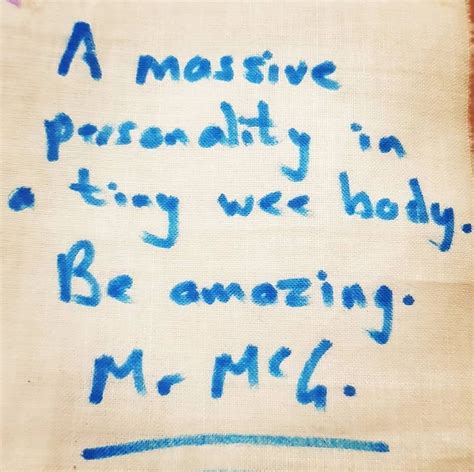 A massive
personality in
a tiny wee body.
Be amazing.
Mr McG.